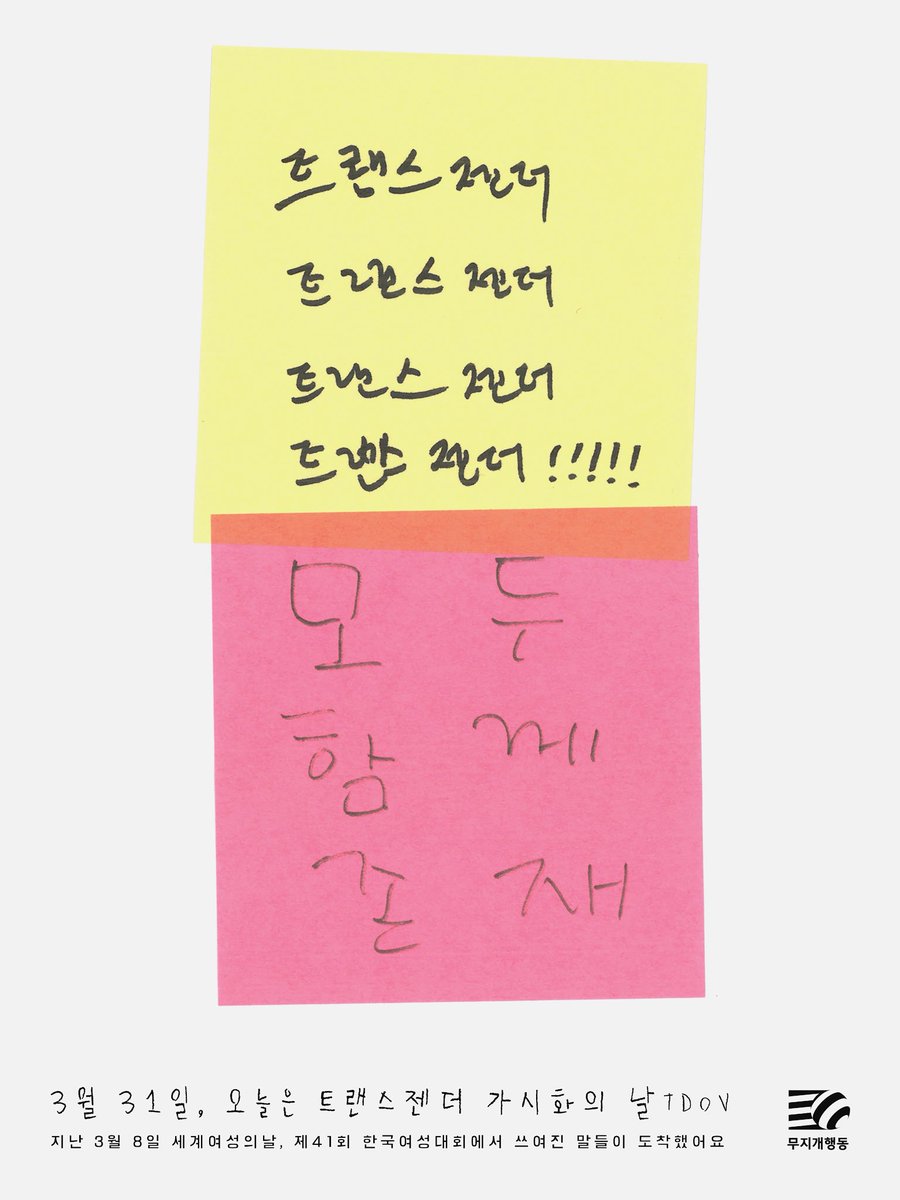 트랜스젠더
트랜스젠더
트랜스젠더
트랜스젠더!!!!!
모두
함께
존재
3월 31일, 오늘은 트랜스젠더 가시화의 날 TDOV
지난 3월 8일 세계여성의날, 제41회 한국여성대회에서 쓰여진 말들이 도착했어요
무지개행동